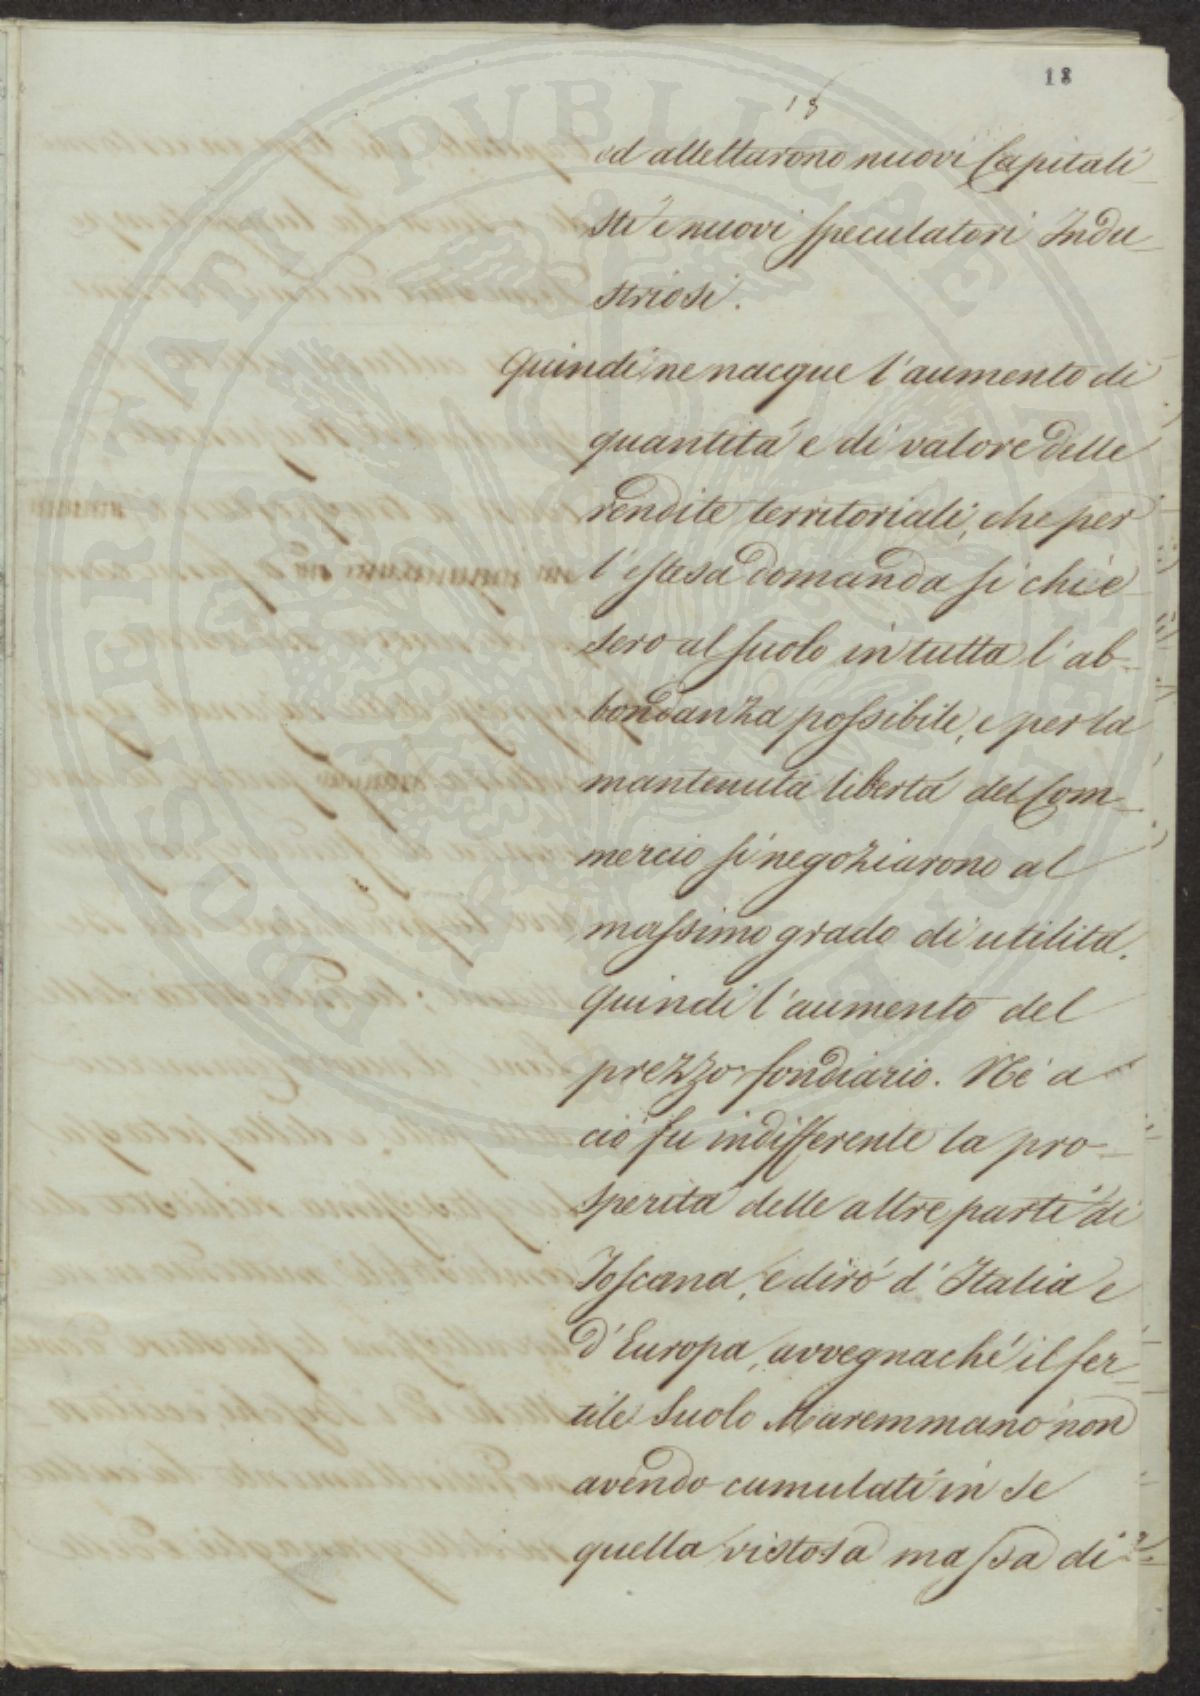 18
18
ed allettarono nuovi Capitali-
sti e nuovi speculatori Indu-
striosi.
Quindi ne nacque l'aumento di
quantità e di valore delle
rendite territoriali, che per
l'estesa domanda si chie-
sero al suolo in tutta l'ab-
bondanza possibile, e per la
mantenuta libertà del Com-
mercio si negoziarono al
massimo grado di utilità.
Quindi l'aumento del
prezzo fondiario. Nè a
ciò fu indifferente la pro-
sperità delle altre parti di
Toscana, e dirò d'Italia e
d'Europa, avvegnaché il fer-
tile Suolo Maremmano non
avendo cumulati in se
quella vistosa massa di
PROSPERITATI PUBLICAE AUGENDAE